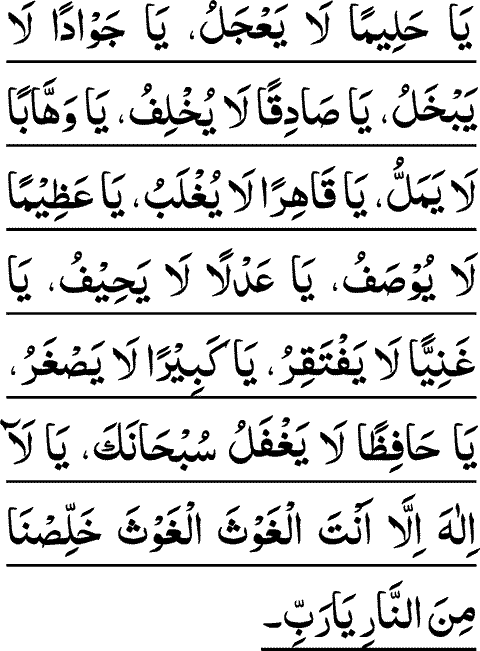 يَا حَلِيمًا لَا يَعْجَلُ، يَا جَوَادًا لَا
يَبْخَلُ، يَا صَادِقًا لَا يُخْلِفُ، يَا وَهَّابًا
لَا يَمَلُّ، يَا قَاهِرًا لَا يُغْلَبُ، يَا عَظِيْمًا
لَا يُوْصَفُ، يَا عَدْلًا لَا يَحِيْفُ، يَا
غَنِيًّا لَا يَفْتَقِرُ، يَا كَبِيْرًا لَا يَصْغَرُ،
يَا حَافِظًا لَا يَغْفَلُ سُبْحَانَكَ، يَا لَآ
اِلٰهَ اِلَّا اَنْتَ الْغَوْثَ الْغَوْثَ خَلِّصْنَا
مِنَ النَّارِ يَا رَبِّ۔